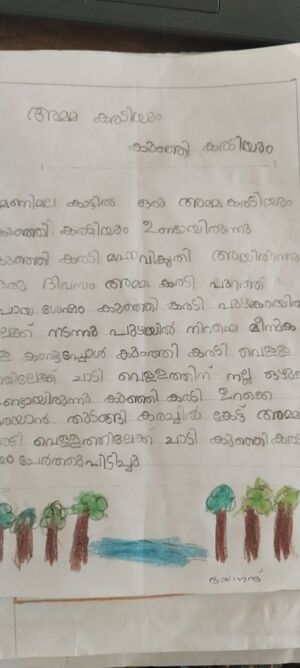 അമ്മ കരടിയും
കുഞ്ഞി കരടിയും
മണിമല കാട്ടിൽ ഒരു അമ്മകരടിയും
കുഞ്ഞി കരടിയും ഉണ്ടായിരുന്നു
കുഞ്ഞി കരടി മഹാവികൃതി ആയിരുന്നു
ഒരു ദിവസം അമ്മ കരടി പുറത്ത്
പോയ ശേഷം കുഞ്ഞി കരടി
നടന്നു പുഴയിൽ നിറയെ മീനുക
കണ്ടപ്പോൾ കുഞ്ഞി കരടി വെള്ള
ത്തിലേക്ക് ചാടി വെള്ളത്തിന് നല്ല ഒഴുക്ക
ണ്ടായിരുന്നു കുഞ്ഞി കരടി ഉറക്കെ
കരയാൻ തുടങ്ങി കരച്ചിൽ കേട്ട് അമ്മ
കരടി വെള്ളത്തിലേക്ക് ചാടി കുഞ്ഞികര
ചേർത്തുപിടിച്ചു